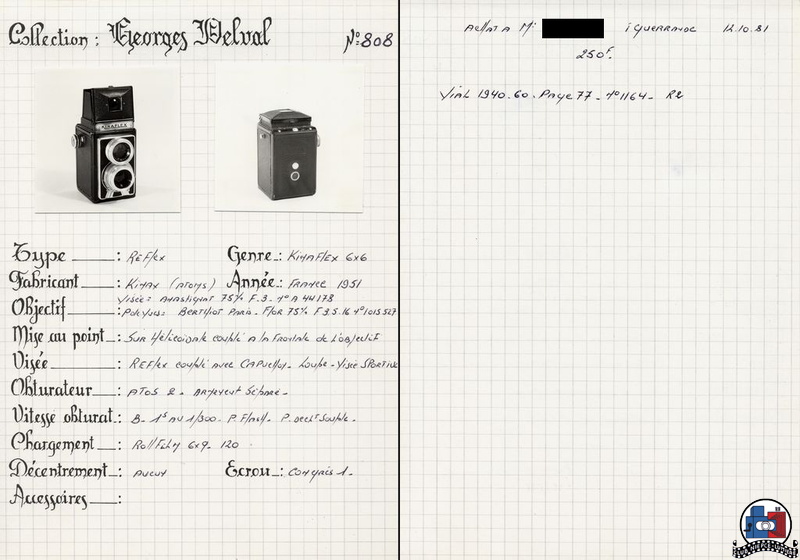 Collection : Georges Delval
N° 808
KINAFLEX
Type : Réflex
Genre : Kinaflex 6x6
Fabricant : Kinax (Atoms)
Année : France 1951
Visée : Anastigmat 75% F.3 - N° A 44178
Objectif : Berthiot Paris - Flor 75% F 3.5.16 N° 1015527
Mise au point : Sur Hélicoïdale couplé a la frontale de l'objectif
Visée : Réflex couplé avec Capuchon - Loupe - Visée Sportive
Obturateur : Atos 2 - Armement Séparé -
Vitesse obturat. : B - 1s au 1/300 - P. Flash - P. décl.t Souple -
Chargement : RollFilm 6x9 - 120
Décentrement : Aucun
Ecrou : Congrès 1 -
Accessoires :
Achat a M.
Guerrande 12.10.81
250F.
Vial 1940.60. Page 77 - N° 1164 - R2